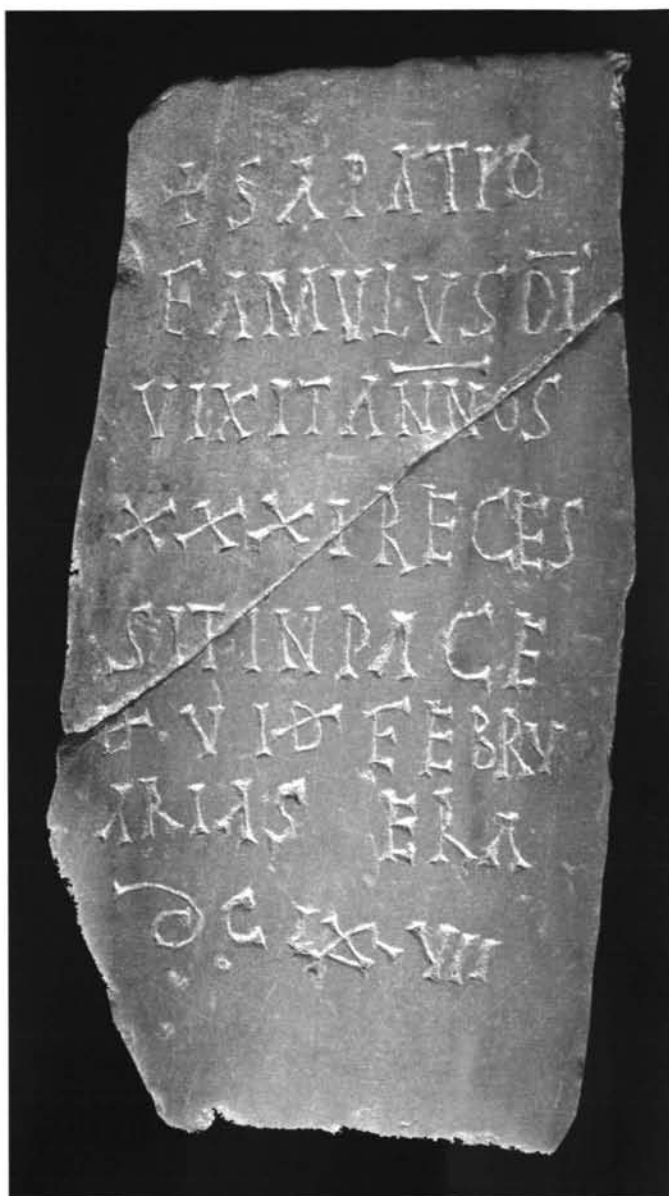 + SAPATIO
FAMVLVS DĪ
VIXIT AN̅N̅OS
XXXI RECES
SIT IN PACE
D · V ID FEBRV
ARIAS ERA
DC LX VII